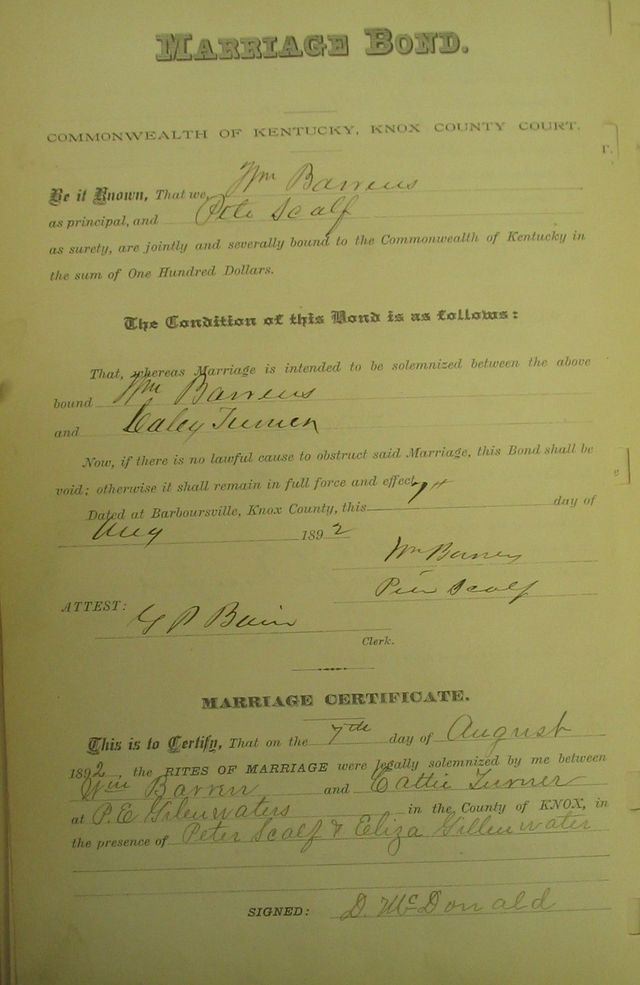 MARRIAGE BOND.
COMMONWEALTH OF KENTUCKY, KNOX COUNTY COURT.
Be it Known, That we, Wm Barrens
as principal, and Pete Scalf
as surety, are jointly and severally bound to the Commonwealth of Kentucky in
the sum of One Hundred Dollars.
The Condition of this Bond is as follows:
That, whereas Marriage is intended to be solemnized between the above
bound Wm Barrens
and Turner
Now, if there is no lawful cause to obstruct said Marriage, this Bond shall be
void; otherwise it shall remain in full force and effect.
Dated at Barboursville, Knox County, this 7th day of
Aug 1892
Wm Barrens
Peter Scalf
ATTEST:
G P Bain
Clerk.
MARRIAGE CERTIFICATE.
This is to Certify, That on the 7th day of August
1892 the RITES OF MARRIAGE were legally solemnized by me between
Wm Barren and Cattie Turner
at P. E Gilenwaters in the County of KNOX, in
the presence of Peter Scalf & Eliza Gillenwater
SIGNED: D. McDonald